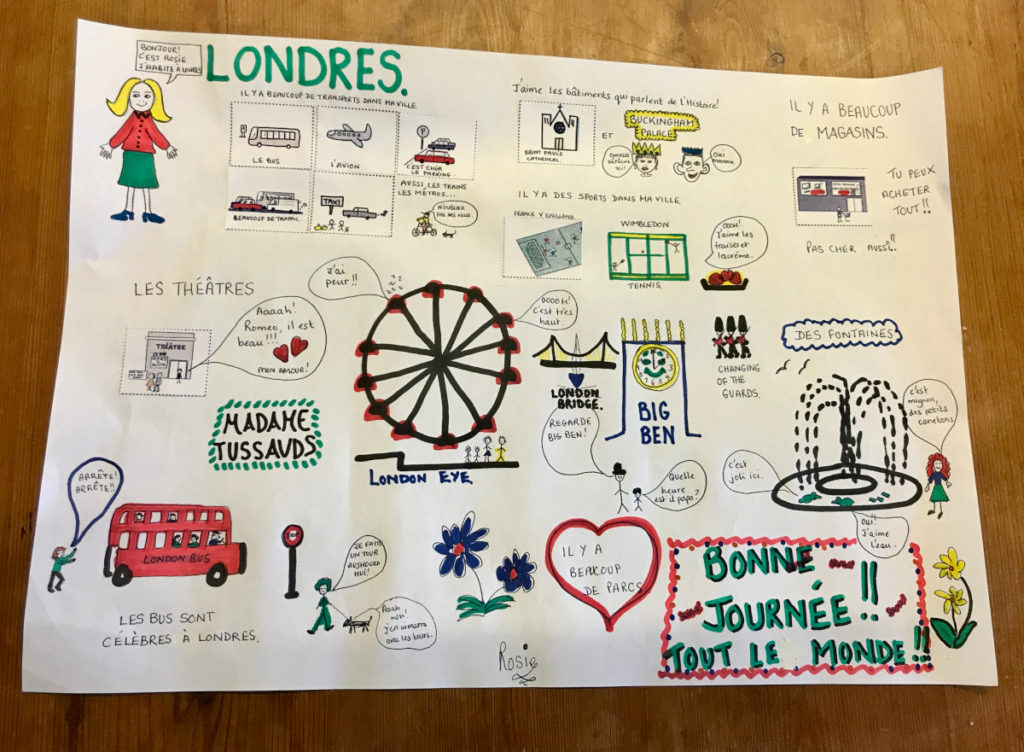 BONJOUR!
C'EST ROSIE
J'HABITE À LONRES
LONDRES.
IL Y A BEAUCOUP DE TRANSPORTS DANS MA VILLE.
LE BUS
L'AVION
P
C'EST CHER
LE PARKING
BEAUCOUP DE TRAFFIC.
TAXI
AUSSI, LES TRAINS
LES MÉTROS...
N'OUBLIER
PAS DES VELLE.
J'aime les bâtiments qui parlent de l'Histoire!
SAINT PAULS
CATHEDRAL
ET
BUCKINGHAM
PALACE
CHARLES
DÉPÊCHE
TOI!
OUI
MAMAN.
IL Y A DES SPORTS DANS MA VILLE.
FRANCE V ENGLAND.
WIMBLEDON
TENNIS.
OOOH!
J'aime les
fraises et
la crème.
IL Y A BEAUCOUP
DE MAGASINS.
TU PEUX
ACHETER
TOUT!!
PAS CHER AUSSI!!
LES THÉÂTRES
THÉÂTRE
Aaaah!
Romeo, il est
beau!!!
MON AMOUR!
J'ai
peur!!
zzzz
OOOOH!
C'est très
haut.
LONDON EYE.
MADAME
TUSSAUDS
LONDON
BRIDGE.
REGARDE
BIG BEN!
BIG
BEN
Quelle
heure
est il papa?
CHANGING
OF THE
GUARDS.
DES FONTAINES
c'est
mignon,
des petits
canetons
c'est
joli ici.
OUI!
J'aime
L'eau.
ARRÊTE!
ARRÊTE!!
LONDON BUS
LES BUS SONT
CÉLÈBRES À LONDRES.
STOP
JE FAITS
UN TOUR
AUJHOURD
HUI!
Aaah
non!
j'en aimarra
avec les tours.
IL Y A
BEAUCOUP
DE PARCS
BONNE
JOURNÉE!!
TOUT LE MONDE!!
Rosie